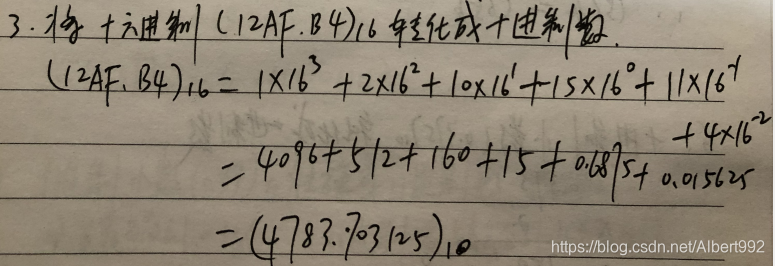 3. 将十六进制 (12AF.B4)₁₆ 转化成十进制数.
(12AF.B4)₁₆ = 1×16³ + 2×16² + 10×16¹ + 15×16⁰ + 11×16⁻¹
+ 4×16⁻²
= 4096 + 512 + 160 + 15 + 0.6875 + 0.015625
= (4783.703125)₁₀
https://blog.csdn.net/Albert992